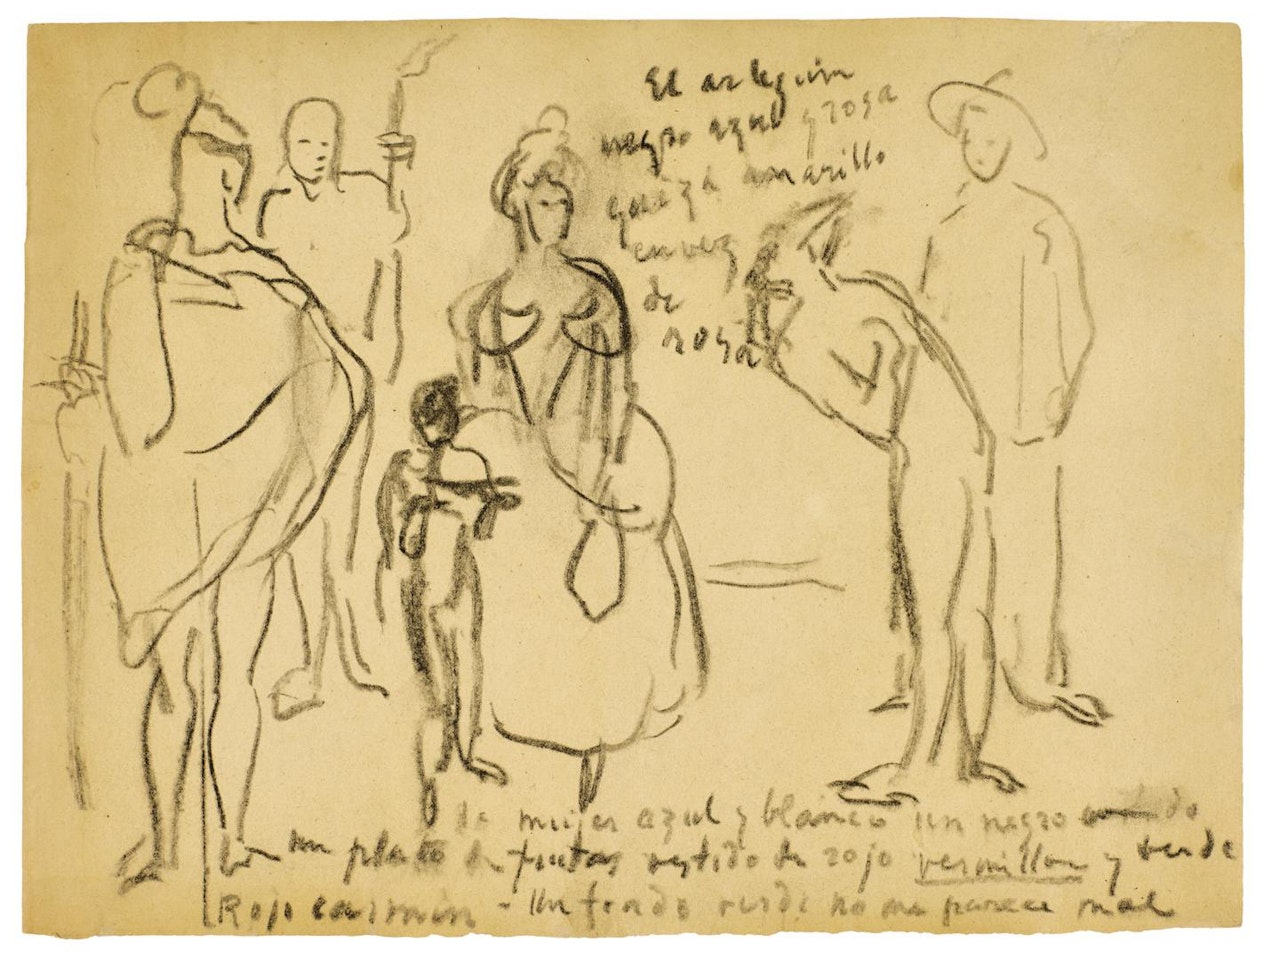 El arlequin
negro azul y rosa
quizá amarillo
en vez
de
rosa
la mujer azul y blanco un negro
con un plato de frutas vestido de rojo vermillon y verde
Rojo carmin - Un fondo verde no me parece mal